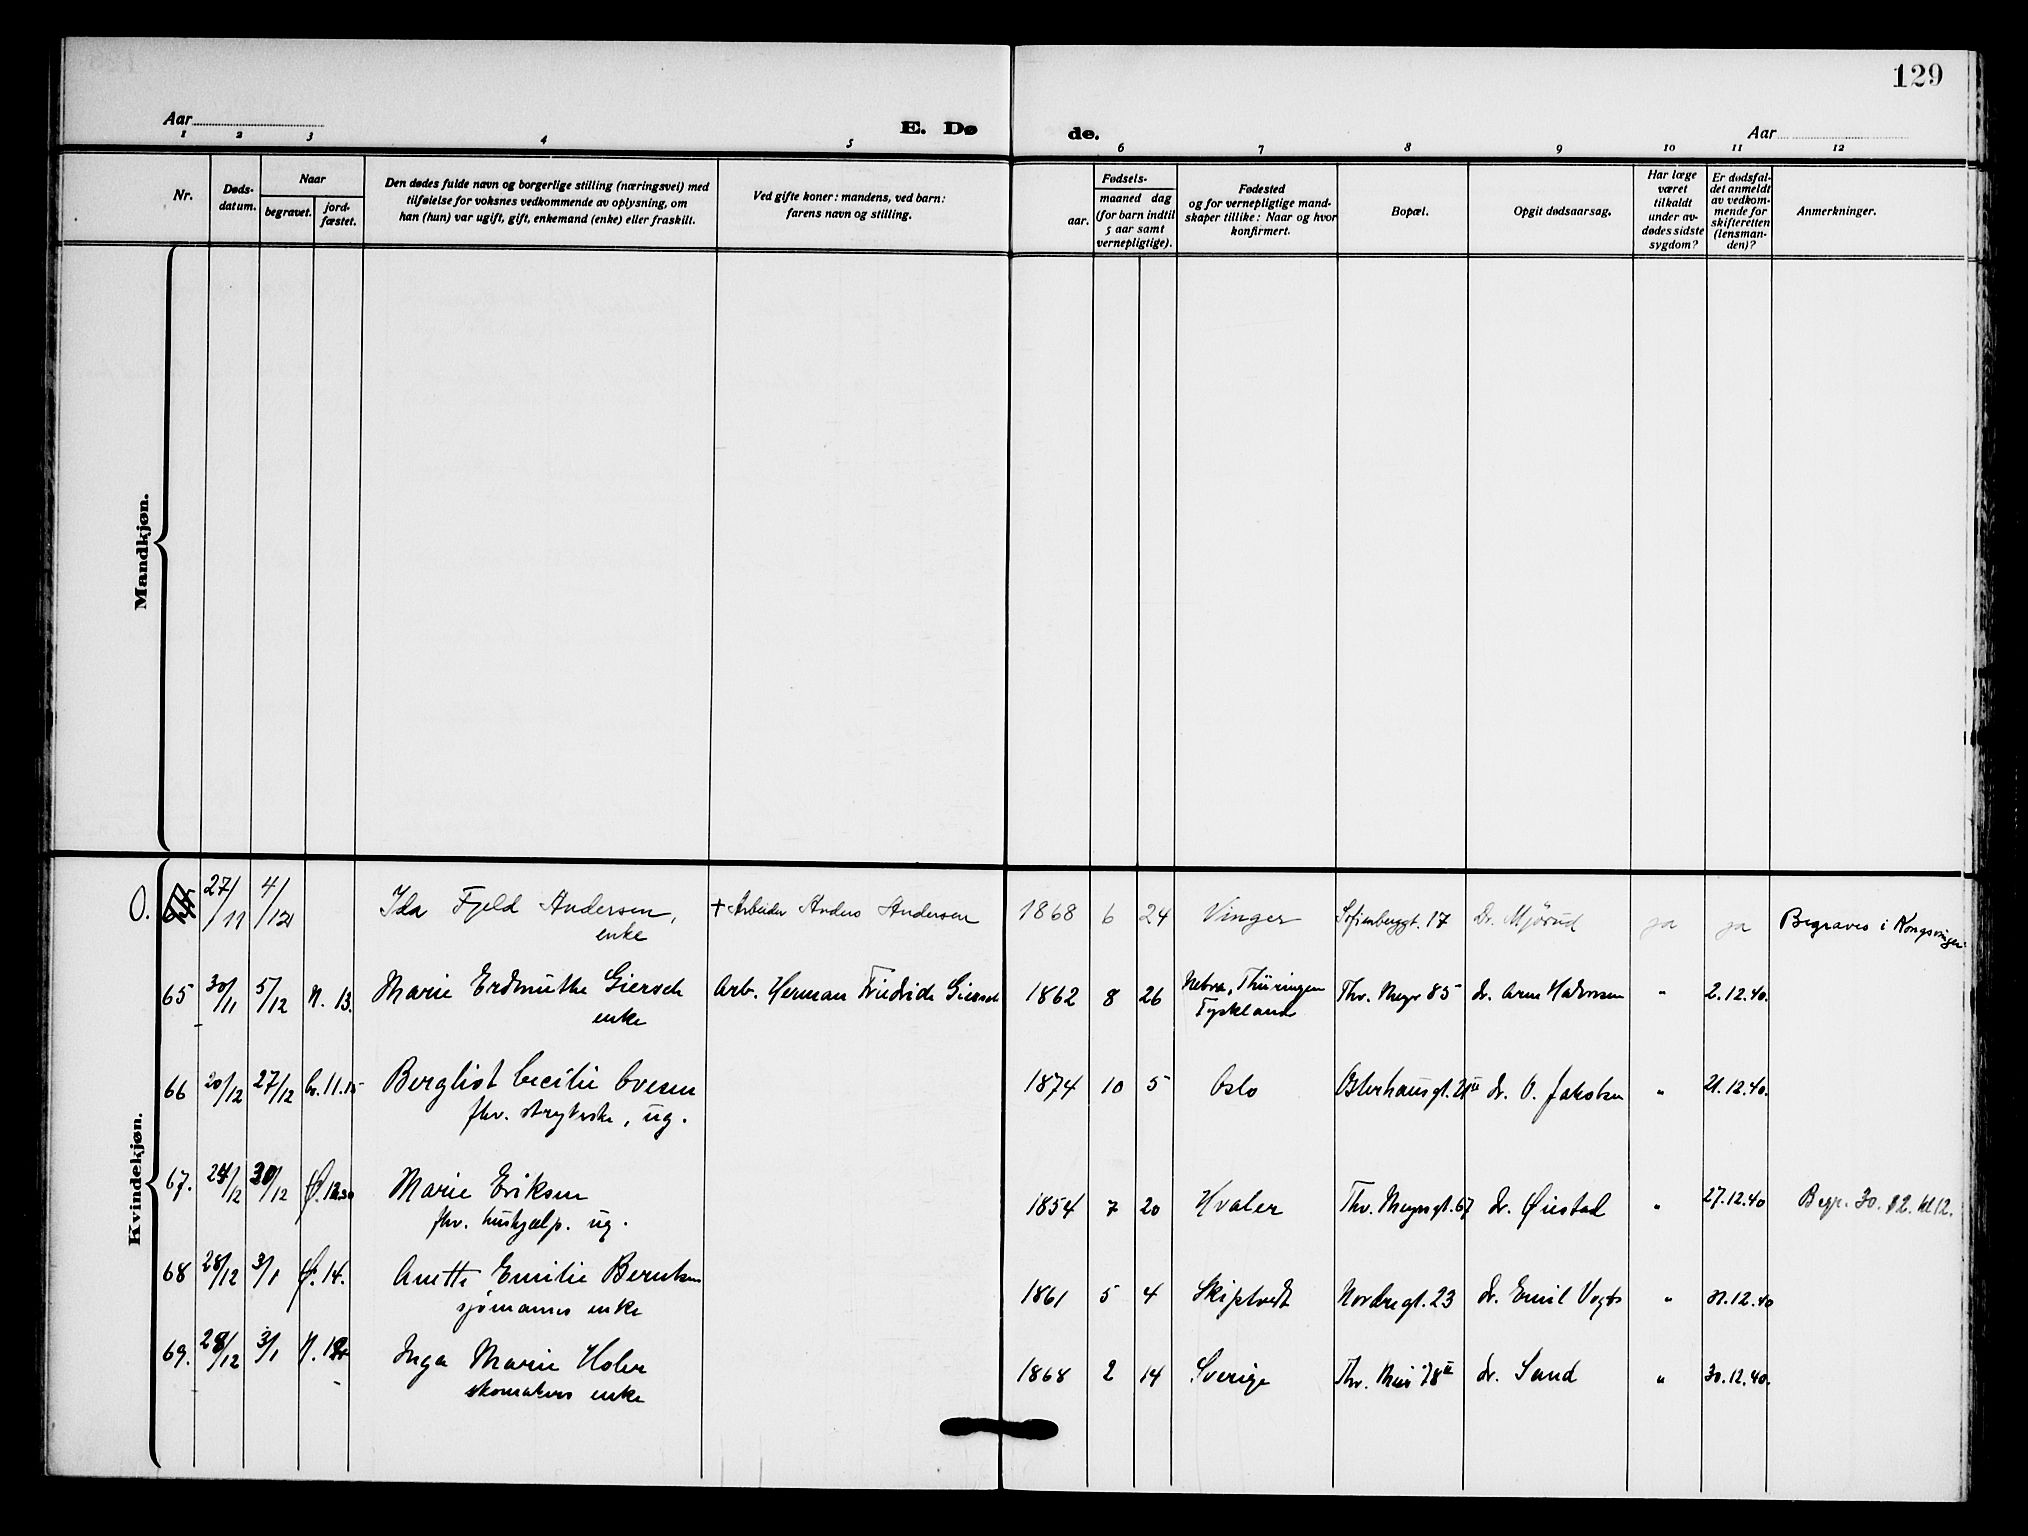 129
Aar
E. Dø
de.
Aar
1 2 3 4 5 6 7 8 9 10 11 12
Nr.
Døds-
datum.
Naar
begravet.
jord-
fæstet.
Den dødes fulde navn og borgerlige stilling (næringsvei) med
tilføielse for voksnes vedkommende av oplysning, om
han (hun) var ugift, gift, enkemand (enke) eller fraskilt.
Ved gifte koner: mandens, ved barn:
farens navn og stilling.
Fødsels-
aar.
maaned dag
(for barn indtil
5 aar samt
vernepligtige).
Fødested
og for vernepligtige mand-
skaper tillike: Naar og hvor
konfirmert.
Bopæl.
Opgit dødsaarsag.
Har læge
været
tilkaldt
under av-
dødes sidste
sygdom?
Er dødsfal-
det anmeldt
av vedkom-
mende for
skifteretten
(lensman-
den)?
Anmerkninger.
Mandkjøn.
Kvindekjøn.
O. 27/11 4/12 Ida Fjeld Andersen, + Arbeider Anders Andersen 1868 6 24 Vinger Sofienberggt. 17 Dr. Mjørud ja ja Begraves i Kongsvinger.
enke
65 30/11 5/12 N. 13. Marie Erdmuthe Giersch Arb. Herman Friedrich Giersch 1862 8 26 Nebra, Thüringen Thv. Meyr 85 dr. Arne Halvorsen " 2.12.40.
enke Tyskland
66 20/12 27/12 Cr. 11.15 Bergliot Cecilie Ovesen 1874 10 5 Oslo Osterhausgt. dr. O. Jakobsen " 21.12.40.
fhv. strykerske, ug.
67. 24/12 30/12 Ø. Marie Eriksen 1854 7 20 Hvaler Thv. Meyrsgt. 67 dr. Øiestad " 27.12.40 Begr. 30. 12. kl 12.
fhv. hushjælp. ug.
68 28/12 3/1 Ø. 14. Anette Emilie Berntsen 1861 5 4 Skiptvedt Nordregt. 23 dr. Emil Vogt " 31.12.40
sjømannes enke
69. 28/12 3/1 N. Inga Marie Holer 1868 2 14 Sverige Thv. Meier 78 II dr. Sand " 30.12.40.
skomakers enke